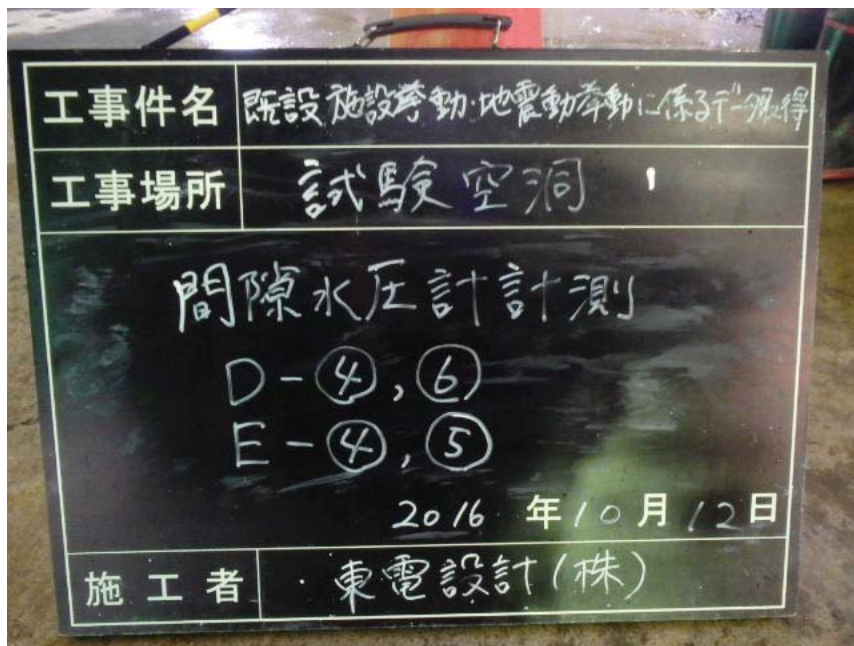 工事件名 既設施設挙動・地震動挙動に係るデータ取得
工事場所 試験空洞
間隙水圧計計測
D-④,⑥
E-④,⑤
2016 年10月12日
施工者 東電設計(株)